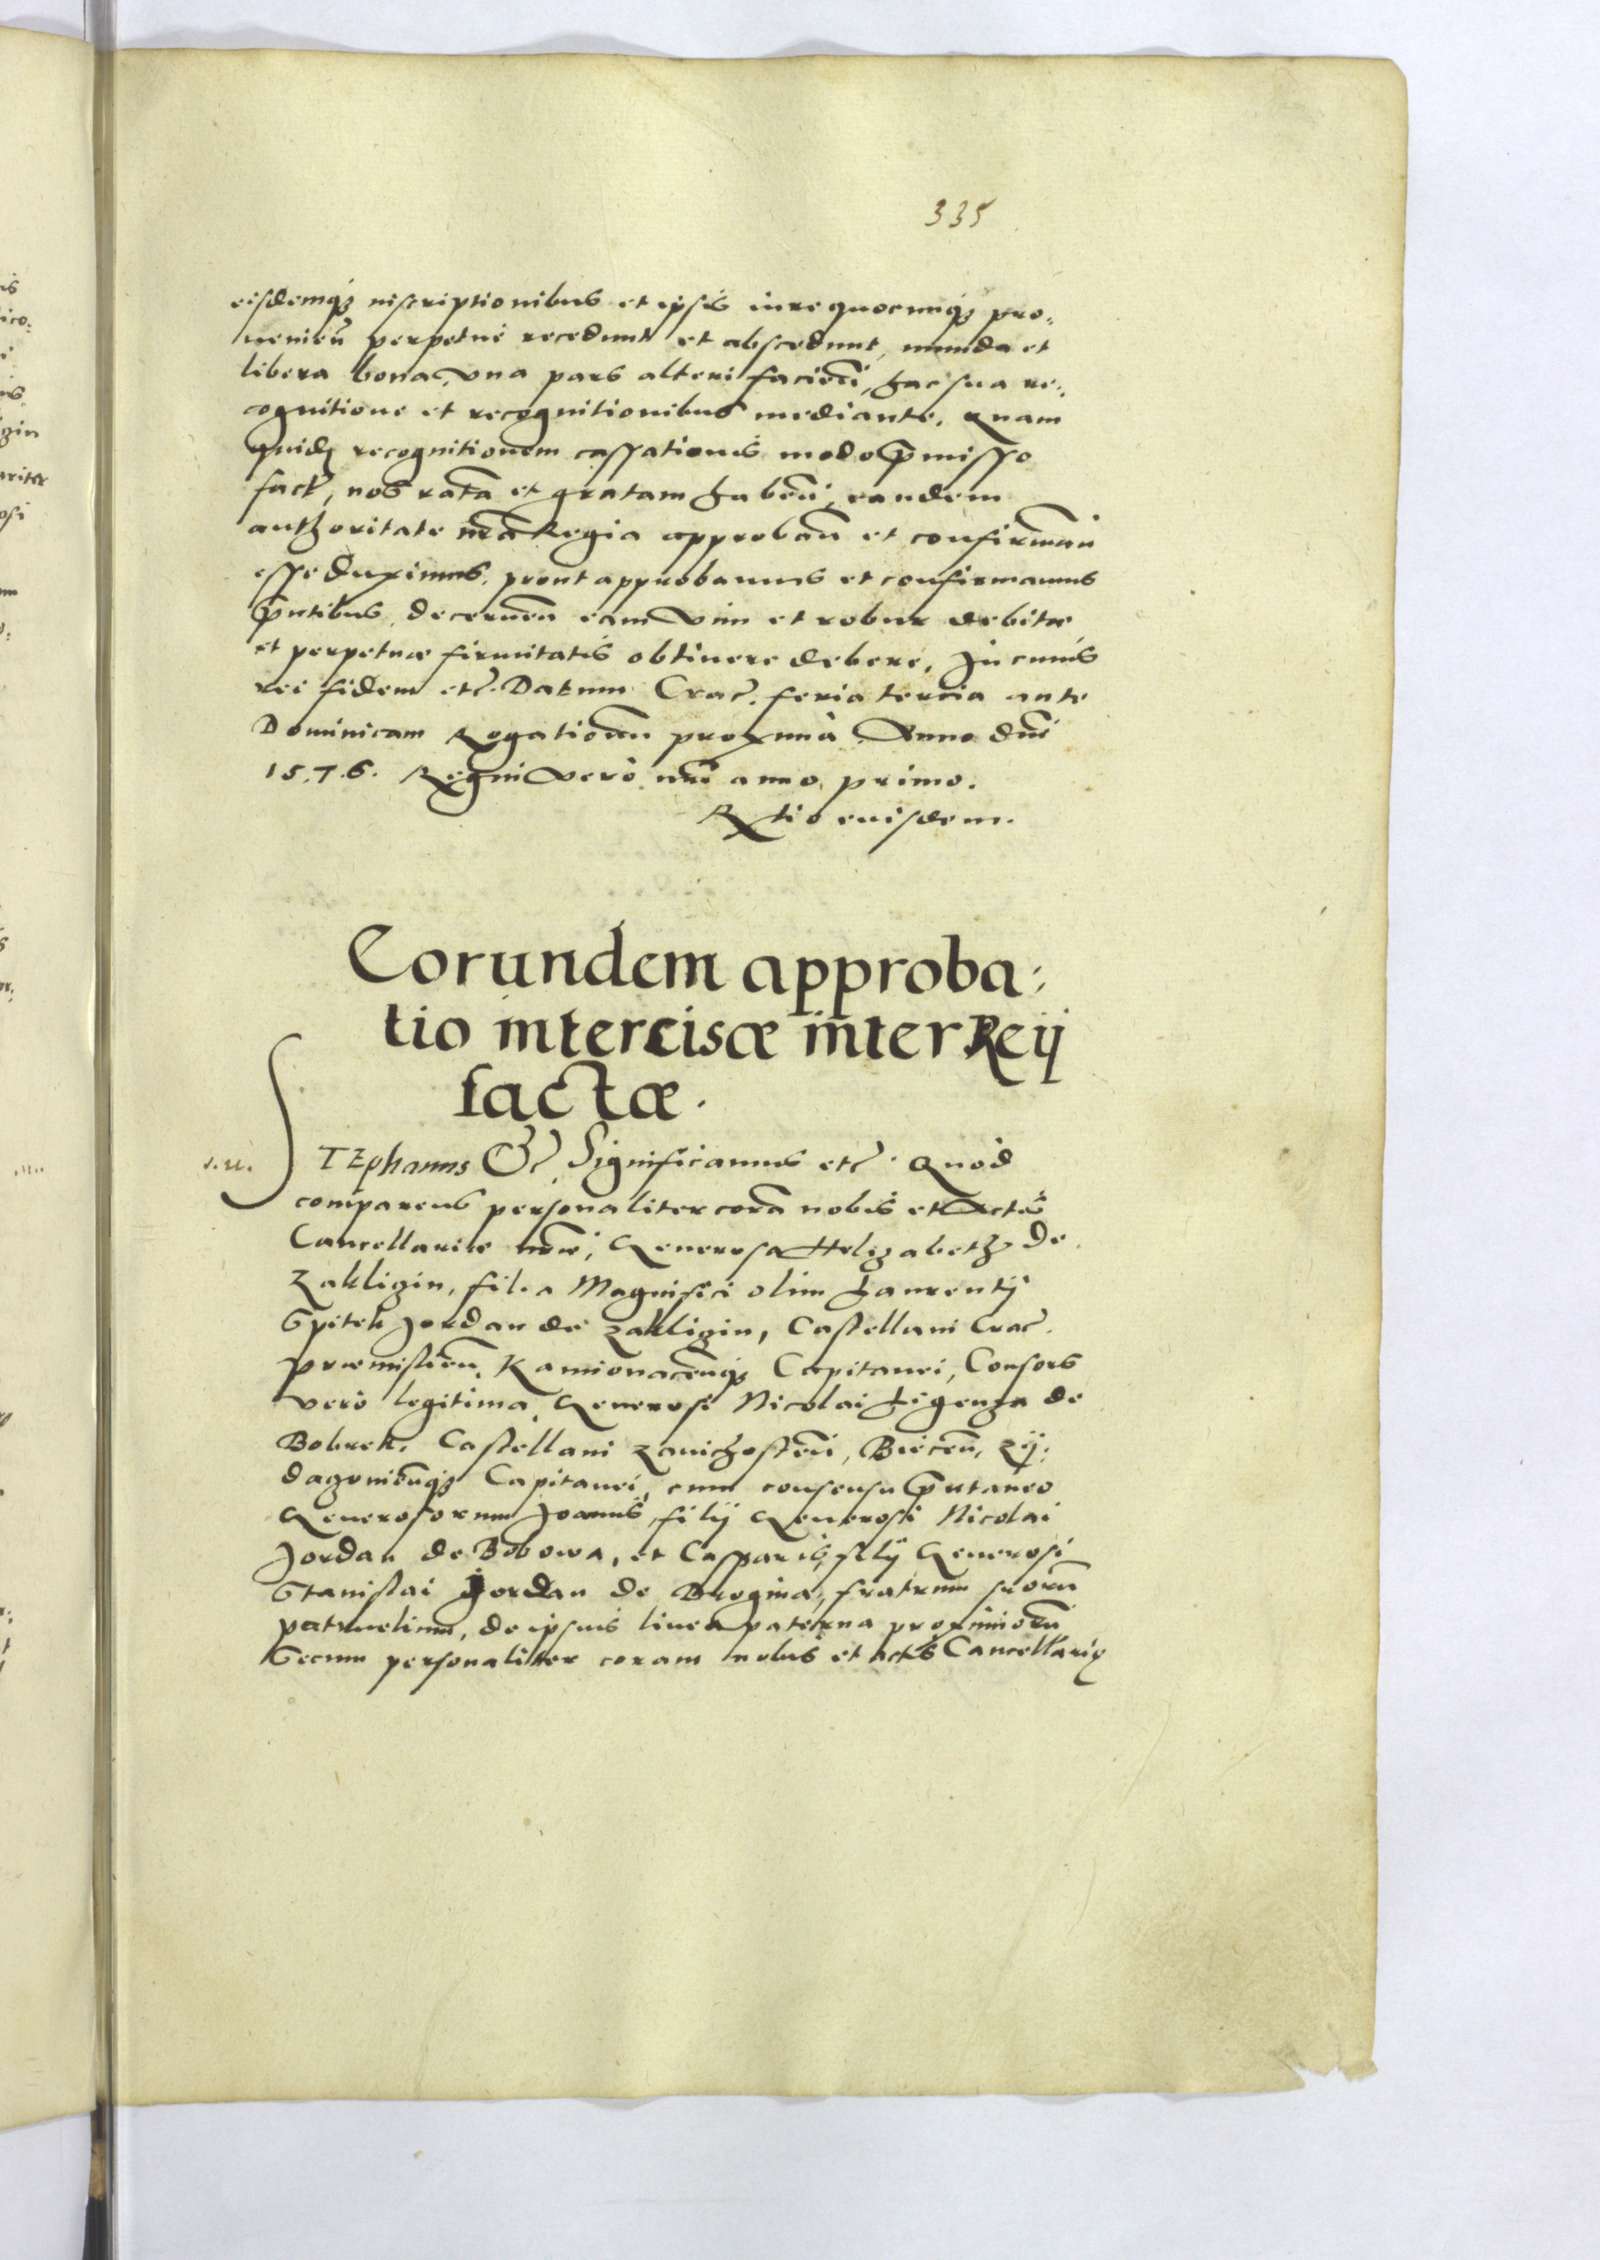 335
eisdemq; inscriptionibus et ipsis iure quocunq; pro:
uenien̄ perpetuè recedunt et abscedunt, munda et
libera bona, vna pars alteri facien̄, hac sua re:
cognitione et recognitionibus mediante. Quam
quidē recognitionem cassationis modo p̄misso
fact̄, nos ratā et gratam haben̄, eandem
authoritate nr̄a Regia approban̄ et confirman̄
esse duximus, prout approbamus et confirmamus
p̄ntibus, decernen̄ eam vim et robur debitæ
et perpetuæ firmitatis obtinere debere. In cuius
rei fidem etc̄. Datum Crac̄. feria tercia ante
Dominicam Rogationū proximā Anno dn̄i
15.7.6. Regni vero nr̄i anno primo.
Rx̄tio eiusdem.
Eorundem approba:
tio intercisæ inter Reij
factæ.
STEphanus &c̄. Significamus etc̄. Quod
comparens personaliter corā nobis et Actis
Cancellariæ nr̄æ, Generosa Helizabeth de
Zakliczin, filia Magnifici olim Laurentij
Spitek Jordan de Zakliczin, Castellani Crac̄.
Præmislien̄. Kamionacen̄q; Capitanei, Consors
vero legitima Generosi Nicolai Ligenza de
Bobrek, Castellani Zauichosten̄, Biecen̄, Zij:
dazouien̄q; Capitanei, cum consensu p̄ntaneo
Generosorum Joannis filij Generosi Nicolai
Jordan de Bobowa, et Casparis filij Generosi
Stanislai Jordan de Brogina, fratrum suorū
patruelium, de ipsius linea paterna proximiorū
Secum personaliter coram nobis et Actis Cancellariæ